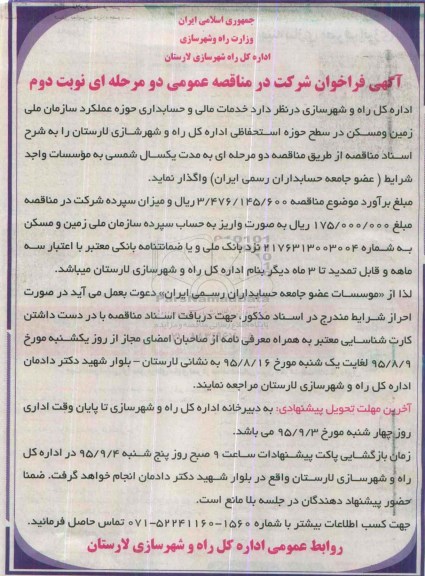 جمهوری اسلامی ایران
وزارت راه وشهرسازی
اداره کل راه شهرسازی لارستان
آگهی فراخوان شرکت در مناقصه عمومی دو مرحله ای نوبت دوم
اداره کل راه و شهرسازی درنظر دارد خدمات مالی و حسابداری حوزه عملکرد سازمان ملی
زمین ومسکن در سطح حوزه استحفاظی اداره کل راه و شهرسازی لارستان را به شرح
اسناد مناقصه از طریق مناقصه دو مرحله ای به مدت یکسال شمسی به مؤسسات واجد
شرایط ( عضو جامعه حسابداران رسمی ایران) واگذار نماید.
مبلغ برآورد موضوع مناقصه ۳/۴۷۶/۱۴۵/۶۰۰ ریال و میزان سپرده شرکت در مناقصه
مبلغ ۱۷۵/۰۰۰/۰۰۰ ریال به صورت واریز به حساب سپرده سازمان ملی زمین و مسکن
به شماره ۲۱۷۶۳۱۳۰۰۳۰۰۴ نزد بانک ملی و یا ضمانتنامه بانکی معتبر با اعتبار سه
ماهه و قابل تمدید تا ۳ ماه دیگر بنام اداره کل راه و شهرسازی لارستان میباشد.
لذا از «موسسات عضو جامعه حسابداران رسمی ایران» دعوت بعمل می آید در صورت
احراز شرایط مندرج در اسناد مذکور، جهت دریافت اسناد مناقصه با در دست داشتن
کارت شناسایی معتبر به همراه معرفی نامه از صاحبان امضای مجاز از روز یکشنبه مورخ
۹۵/۸/۹ لغایت یک شنبه مورخ ۹۵/۸/۱۶ به نشانی لارستان - بلوار شهید دکتر دادمان
اداره کل راه و شهرسازی لارستان مراجعه نمایند.
آخرین مهلت تحویل پیشنهادی: به دبیرخانه اداره کل راه و شهرسازی تا پایان وقت اداری
روز چهار شنبه مورخ ۹۵/۹/۳ می باشد.
زمان بازگشایی پاکت پیشنهادات ساعت ۹ صبح روز پنج شنبه ۹۵/۹/۴ در اداره کل
راه و شهرسازی لارستان واقع در بلوار شهید دکتر دادمان انجام خواهد گرفت. ضمنا
حضور پیشنهاد دهندگان در جلسه بلا مانع است.
جهت کسب اطلاعات بیشتر با شماره ۱۵۶۰-۵۲۲۴۱۱۶۰-۰۷۱ تماس حاصل فرمائید.
روابط عمومی اداره کل راه و شهرسازی لارستان